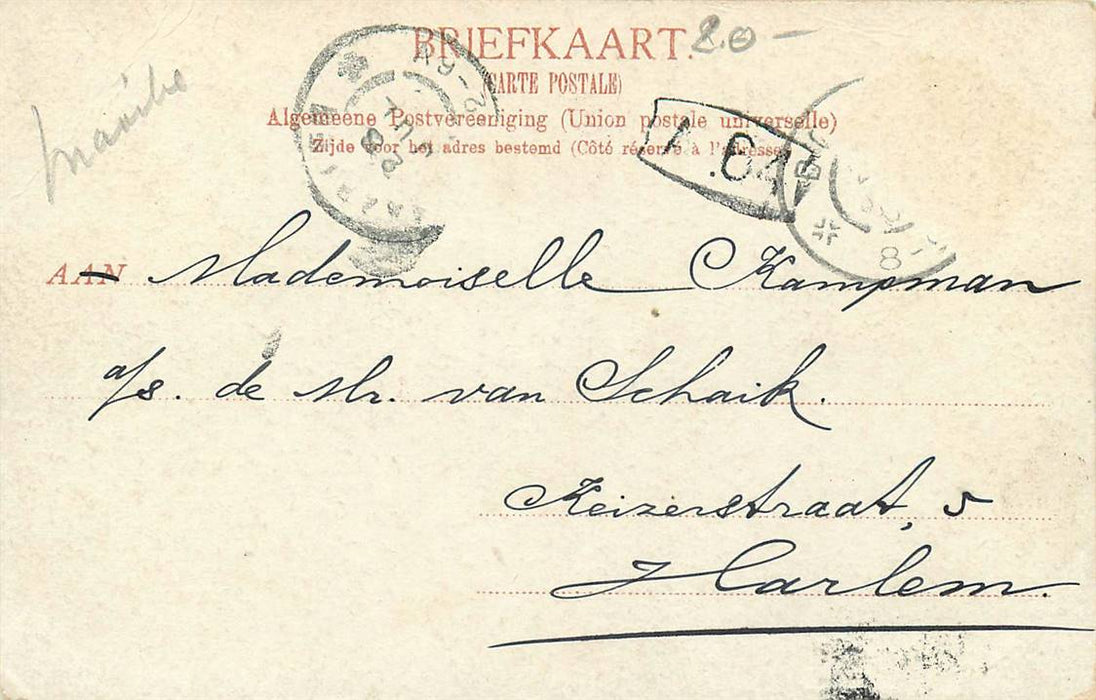 BRIEFKAART. 20-
(CARTE POSTALE)
Algemeene Postvereeniging (Union postale universelle)
Zijde voor het adres bestemd (Côté réservé à l'adresse)
AAN Mademoiselle Kampman
a/s. de Mr. van Schaik.
Keizerstraat, 5
Harlem.